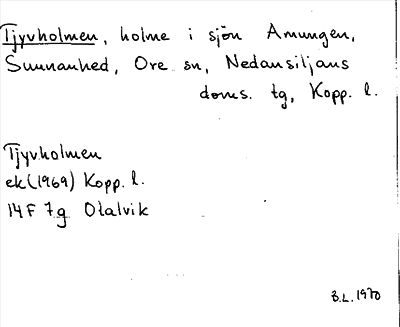 Tjyvholmen, holme i sjön Amungen,
Sunnanhed, Ore sn, Nedansiljans
doms. tg, Kopp. l.
Tjyvholmen
ek (1969) Kopp. l.
14F 7g Otalvik
B.L. 1970